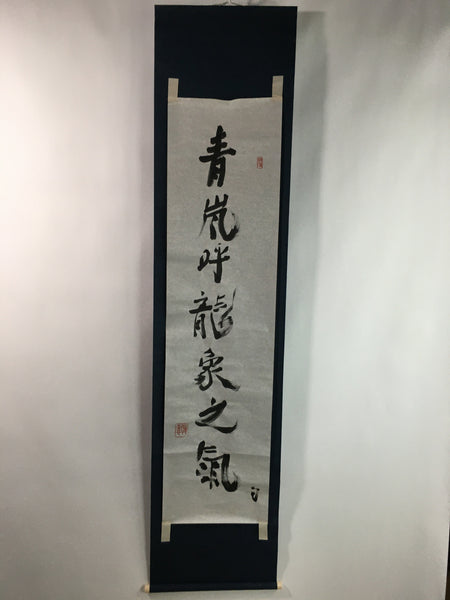 青嵐呼龍象之氣